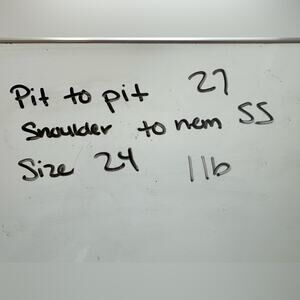 Pit to pit 27
Shoulder to hem 55
Size 24 1lb